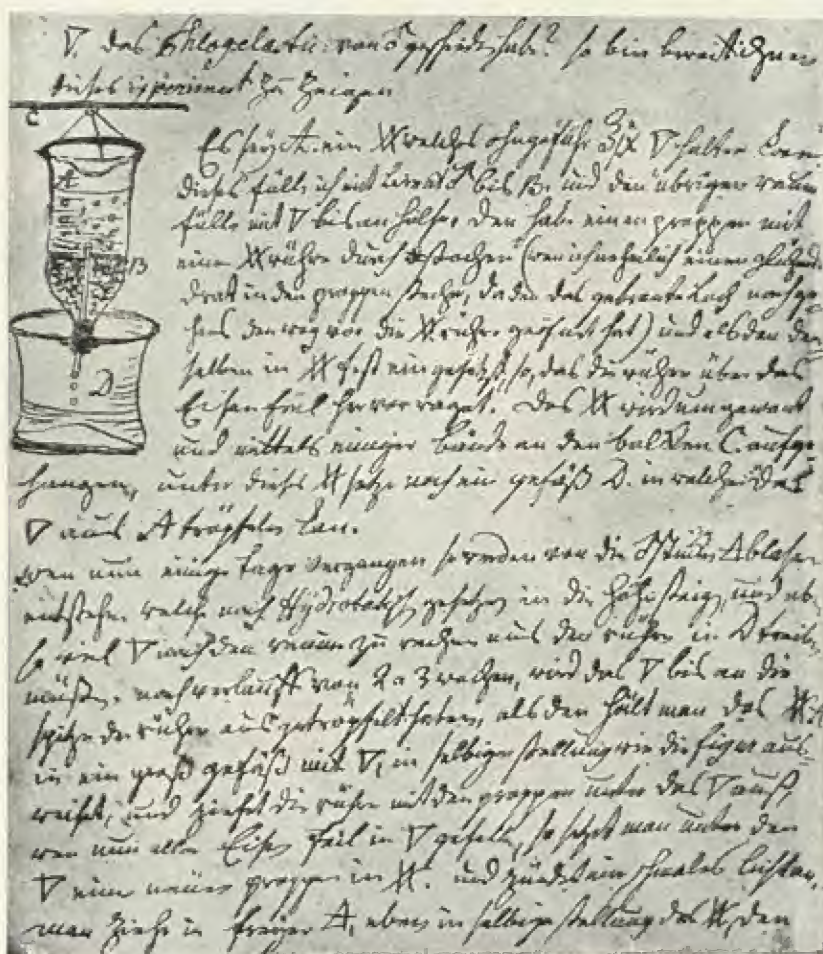 ▽. das Phlogelastic: von ♂ geschieden habe? so bin bereit ihnen
dieses experiment zu zeigen
C
A
B
D
Es seye A. ein welches ohngefähr ▽ halten kan
dieses fülle ich mit ♂ bis B. und den übrigen raum
fülle mit ▽ bis an halse, den habe einen proppen mit
eine röhre durch stochen (wen ich nehmlich einen glühend
drat in den proppen steche, da den das gebrante Loch nachge-
hens den weg vor die röhre geöfnet hat) und als den den-
selben in fest eingesezt, so, das die röhre über das
Eisen feil hervorraget. das wird umgewant
und mittels einiger bände an den balken C. aufge-
hangen, unter dieses setze noch ein gefäß D. in welches das
▽ aus A tröpfeln kan.
Wen nun einige tage vergangen so werden von die ♂ blasen
entstehen welche nach Hydrostatisch gesetzen in die höhe steigen, und eb-
so viel ▽ nach den raum zu rechnen aus den röhre in D treiben
müssen. nach verlauff von 2 a 3 wochen, wird das ▽ bis an die
spize der röhre aus getröpfelt haben, als den hält man das A
in ein groß gefäß mit ▽, in selbige stellung wie die figur aus-
weiset, und ziehet die röhre mit den proppen unter das ▽ auß,
wen nun alle Eisen feil in ▽ gefallen, so sezet man unter den
▽ eine neuen proppen in . und zündet ein schmales lichtan,
man ziehe in freyer , eben in selbige stellung des , den